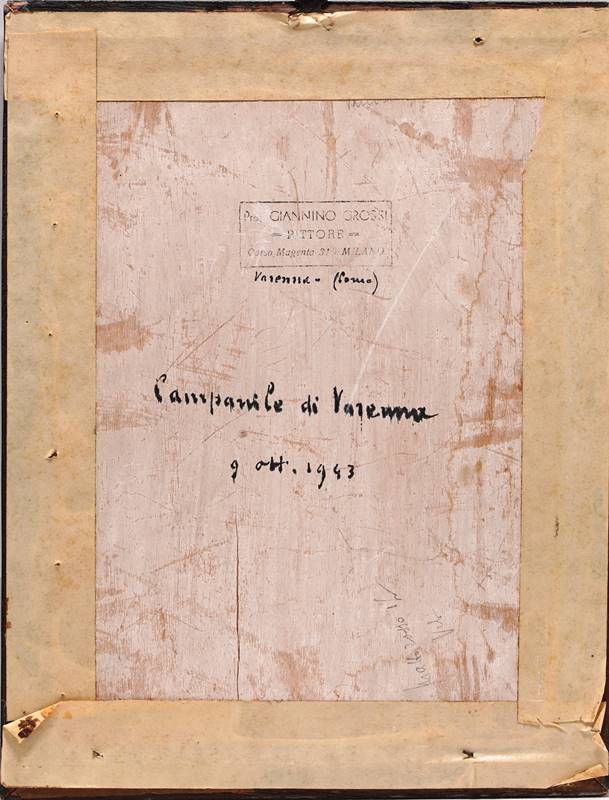 Prof. GIANNINO GROSSI
= PITTORE =
Corso Magenta 31 - MILANO
Varenna - (Como)
Campanile di Varenna
9 ott. 1943